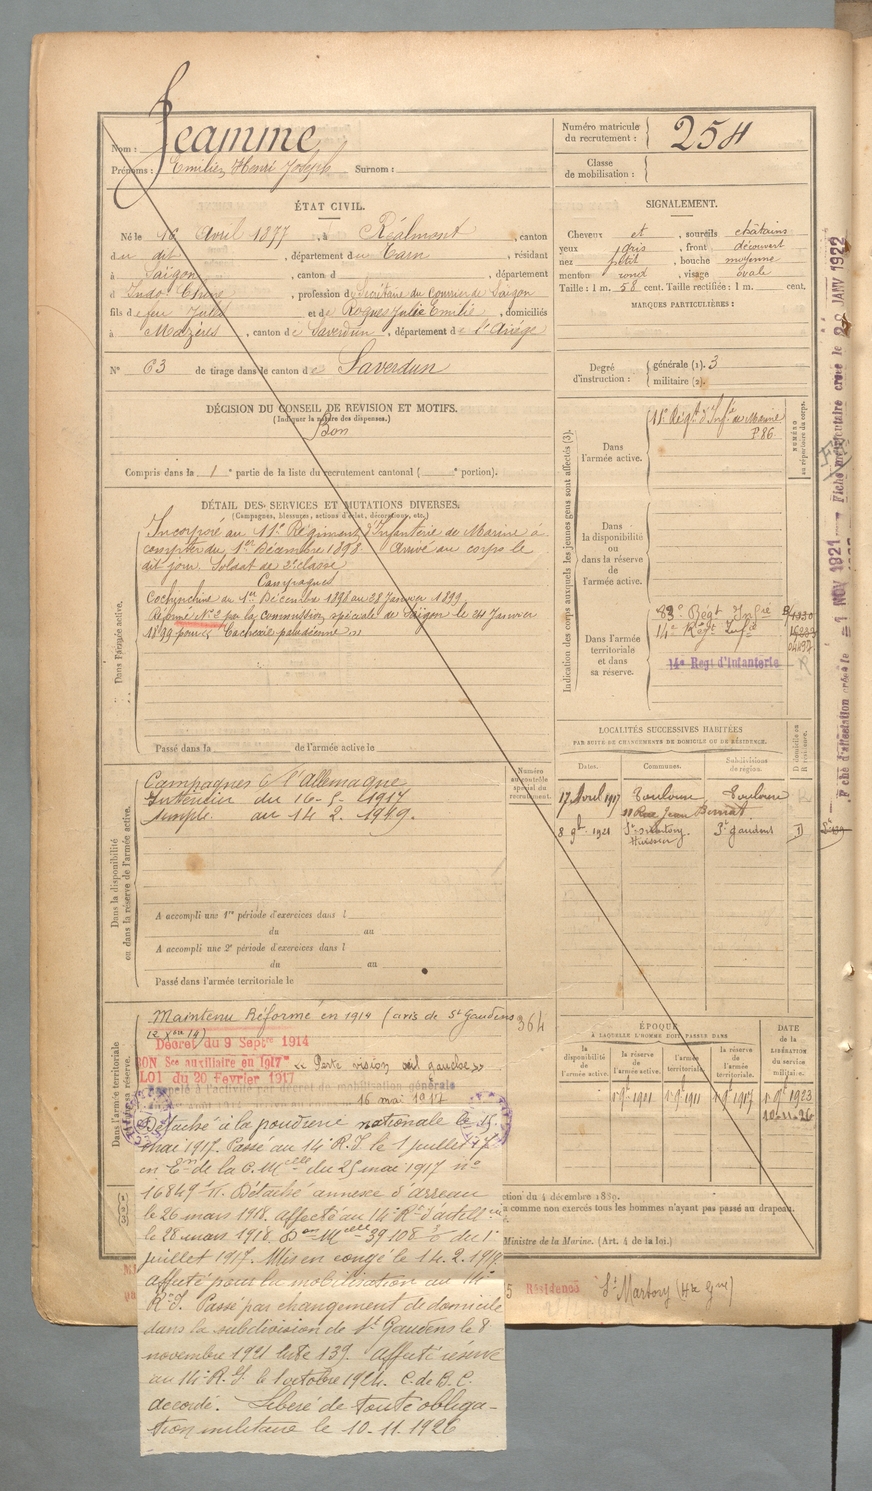 Nom : Jeamme
Prénoms : Emilien Henri Joseph Surnom :
Numéro matricule du recrutement : 254
Classe de mobilisation :
ÉTAT CIVIL.
Né le 16 Avril 1877, à Réalmont, canton
du dit, département du Tarn, résidant
à Saïgon, canton d , département
d Indo-Chine, profession de Secrétaire du Courrier de Saïgon
fils de feu Jules et de Roques Julie Emilie, domiciliés
à Mazères, canton de Saverdun, département de l'Ariège
N° 63 de tirage dans le canton de Saverdun
SIGNALEMENT.
Cheveux et , sourcils châtains
yeux gris , front découvert
nez petit , bouche moyenne
menton rond , visage ovale
Taille : 1 m. 58 cent. Taille rectifiée : 1 m. cent.
MARQUES PARTICULIÈRES :
Degré d'instruction : générale (1). 3
militaire (2).
DÉCISION DU CONSEIL DE REVISION ET MOTIFS.
(Indiquer la nature des dispenses.)
Bon
Compris dans la 1e partie de la liste du recrutement cantonal ( e portion).
DÉTAIL DES SERVICES ET MUTATIONS DIVERSES.
(Campagnes, blessures, actions d'éclat, décorations, etc.)
Dans l'armée active.
Incorporé au 11e Régiment d'Infanterie de Marine à
compter du 1er Décembre 1898. Arrivé au corps le
dit jour. Soldat de 2e classe
Campagnes
Cochinchine du 1er Décembre 1898 au 28 Janvier 1899.
Réformé N° 2 par la commission spéciale de Saïgon le 24 Janvier
1899 pour "Cachexie paludéenne"
Passé dans la de l'armée active le
Indication des corps auxquels les jeunes gens sont affectés (3).
Dans l'armée active.
11e Régt d'Infie de Marine
NUMÉRO au répertoire du corps.
Dans la disponibilité ou dans la réserve de l'armée active.
Dans l'armée territoriale et dans sa réserve.
83e Régt Infie
14e Régt Infie
14e Régt d'Infanterie
Dans la disponibilité ou dans la réserve de l'armée active.
Campagnes C l'Allemagne
Intérieur du 16-5-1917
simple. au 14 2. 1919.
Numéro au contrôle spécial du recrutement.
A accompli une 1re période d'exercices dans l
du au
A accompli une 2e période d'exercices dans l
du au
Passé dans l'armée territoriale le
LOCALITÉS SUCCESSIVES HABITÉES
PAR SUITE DE CHANGEMENTS DE DOMICILE OU DE RÉSIDENCE.
Dates. Communes. Subdivisions de région. D domicile ou R résidence.
17 Avril 1917 Toulouse Toulouse
11 Rue Jean
8 9b 1921 St Martory St Gaudens D
Huissier
Dans l'armée territoriale et dans sa réserve.
Maintenu Réformé en 1914 (avis de St Gaudens
364
Décret du 9 Septre 1914
BON Sce auxiliaire en 1917 " Perte vision œil gauche "
LOI du 20 février 1917
Rappelé à l'activité par décret de mobilisation générale
16 mai 1917
Détaché à la poudrerie nationale le 15
mai 1917. Passé au 14e R.I. le 1 juillet 17
en Eon de la C. Melle du 25 mai 1917 no
16849 Détaché annexe d'Arreau
le 26 mars 1918. affecté au 14e Rt d'artillerie
le 28 mars 1918. Don Melle 39.108 du 1er
juillet 1917. Mis en congé le 14.2.1919.
affecté pour la mobilisation au 14e
R.I. Passé par changement de domicile
dans la subdivision de St Gaudens le 8
novembre 1921 liste 139. affecté réserve
au 14e R.I. le 1 octobre 1924. C. de B.C.
accordé. Libéré de toute obliga-
tion militaire le 10.11.1926
ÉPOQUE À LAQUELLE L'HOMME DOIT PASSER DANS
la disponibilité de l'armée active. la réserve de l'armée active. l'armée territoriale. la réserve de l'armée territoriale.
DATE de la LIBÉRATION du service militaire.
1 9b 1901 1 9b 1911 1 9b 1917 1 9b 1923
10-11-26
ction du 4 décembre 1889.
comme non exercés tous les hommes n'ayant pas passé au drapeau.
Ministre de la Marine. (Art. 4 de la loi.)
Résidence St Martory (Hte Gne)
Fiche d'affectation créée le 1 NOV 1921